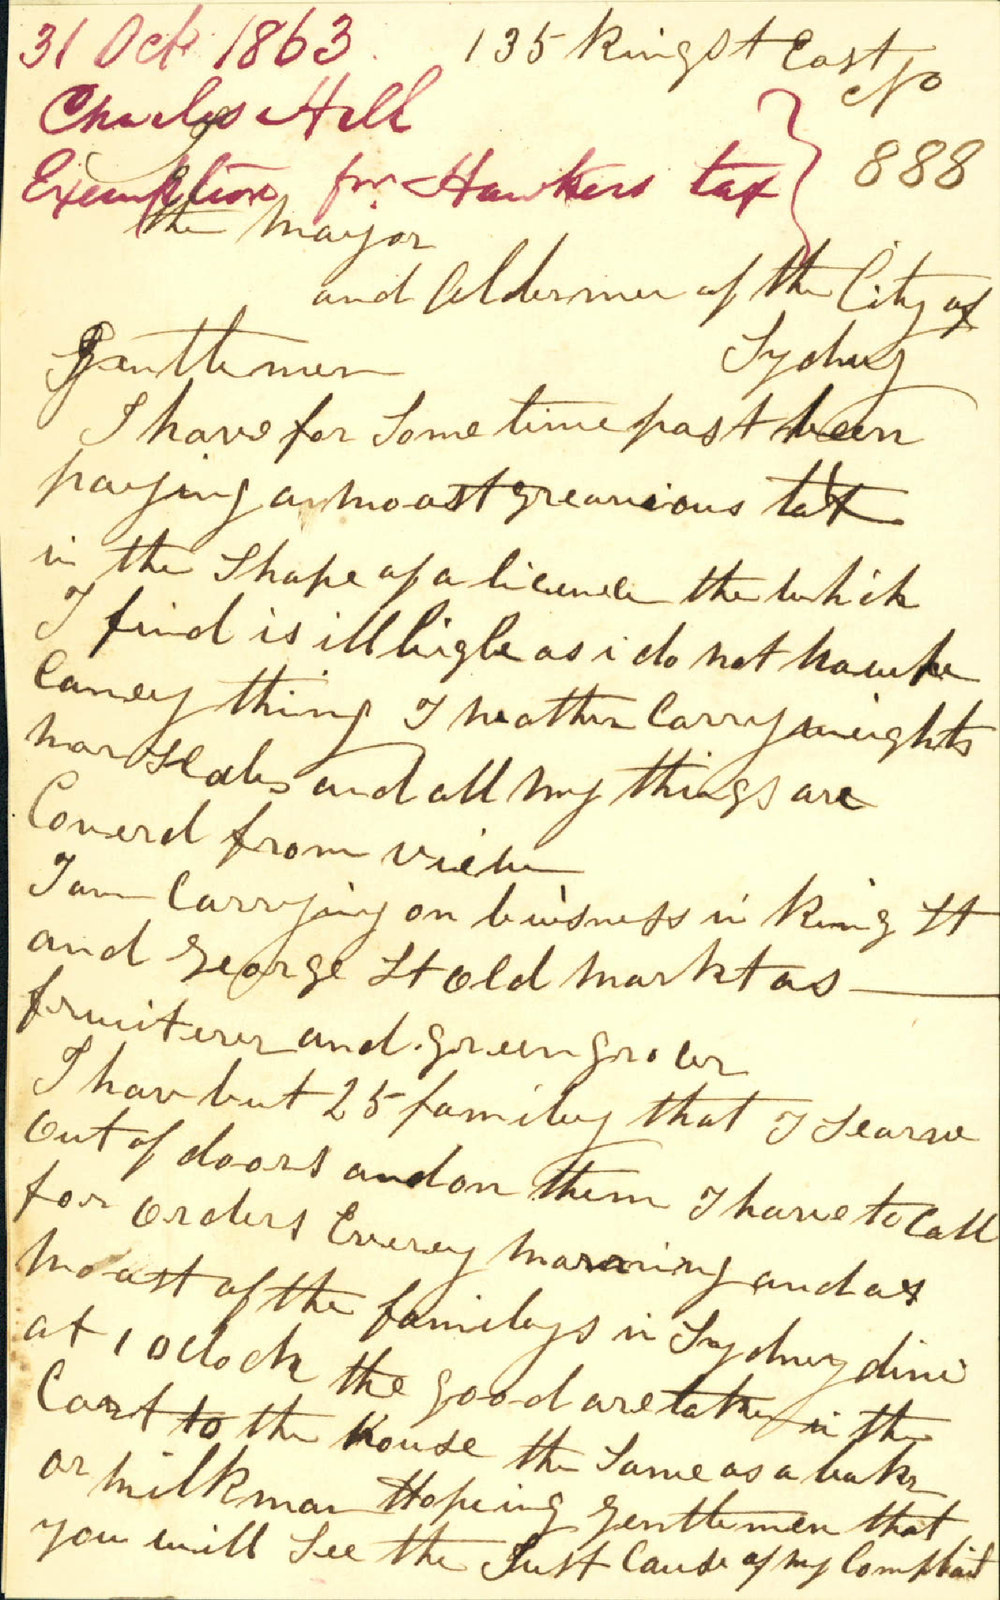 31 Oct 1863. 135 King St East
No
Charles Hill
888
Exemption from Hawkers tax
To
the Mayor
and Aldermen of the City of
Sydney
Gentlemen
I have for Some time past been
paying an moast greavious tax
in the Shape of a licence the which
I find is illligle as i do not hawke
aney thing I neather Carry weights
nor Scales and all my things are
Coverd from view
I am Carrying on buisness in King St
and George St Old Markt as
fruiterer and green grocer
I hav but 25 familey that I Searve
Out of doors and on them I have to Call
for Orders Everey morning and as
moast of the familys in Sydney dine
at 1 Oclock the good are taken in the
Cart to the House the Same as a baker
or milkman Hopeing gentlemen that
you will See the Just Cause of my Complaint